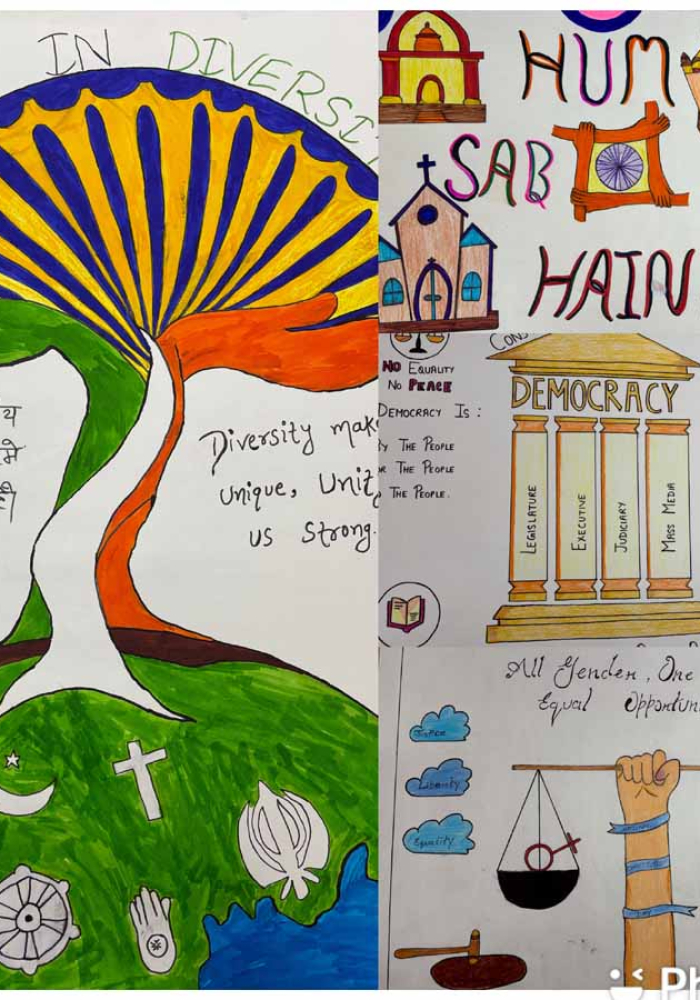 IN DIVERSI
य
मे
ही
Diversity make
unique, Unity
us strong.
HUM
SAB
HAIN
CONS
NO EQUALITY
NO PEACE
DEMOCRACY IS:
BY THE PEOPLE
R THE PEOPLE
THE PEOPLE.
DEMOCRACY
LEGISLATURE
EXECUTIVE
JUDICIARY
MASS MEDIA
All Gender, One
Equal Opportun
Justice
Liberty
Equality
Ph